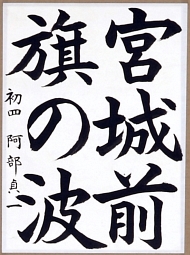 宮城前
旗の波
初四 阿部貞一